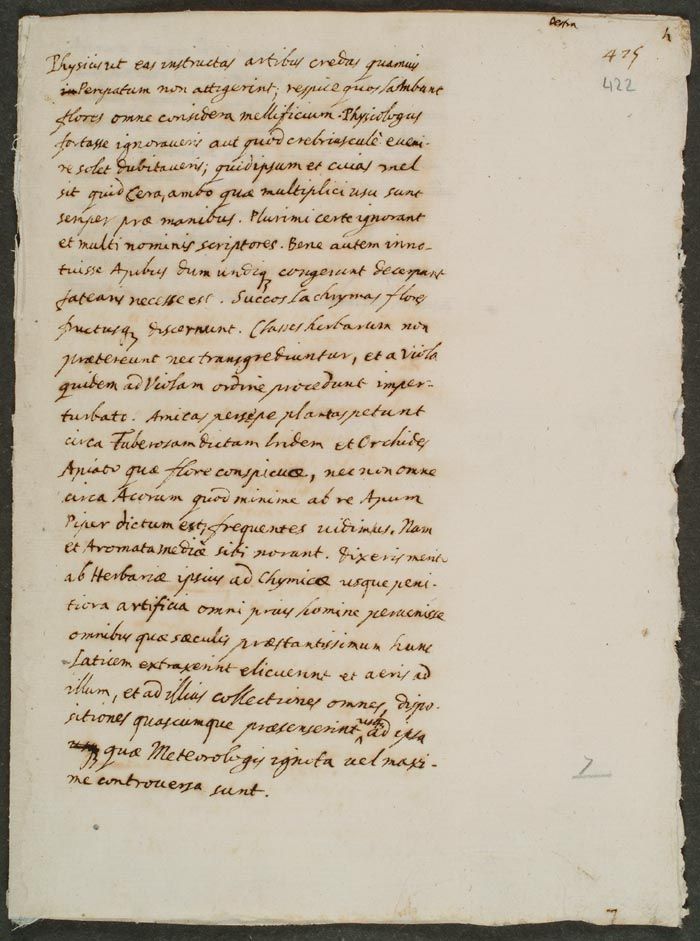 h
425
422
Physicis ut eas instructas artibus credas quamvis
in Peripatum non attigerint; respice quos lambunt
flores omne considera mellificium. Physiologus
fortasse ignoraveris aut quod crebriusculè eveni-
re solet dubitaveris; quid ipsum et cuias mel
sit quid Cera, ambo quæ multiplici usu sunt
semper præ manibus. Plurimi certe ignorant
et multi nominis scriptores. Bene autem inno-
tuisse Apibus dum undiq congerunt decerpant
fatearis necesse est. Succos lachrymas flores
fructusq discernunt. Classes herbarum non
prætereunt nec transgrediuntur, et a Viola
quidem ad Violam ordine procedunt imper-
turbatc. Amicas persępe plantas petunt
circa Tuberosam dictam Iridem et Orchides
Apiato quæ flore conspicuæ, nec non omne
circa Acorum quod minime ab re Apum
Piper dictum est, frequentes vidimus. Nam
et Aromata mediæ sibi norunt. Dixeris merito
ab Herbariæ ipsius ad Chymicæ usque peni-
tiora artificia omni prius homine pervenisse
omnibus quæ sæculis præstantissimum hunc
Laticem extraxerint elicuerint et aeris ad
illum, et ad illius collectiones omnes, dispo-
sitiones quascumque præsenserint usq ad ipsa
quæ Meteorologis ignota vel maxi-
me controversa sunt.
7
7